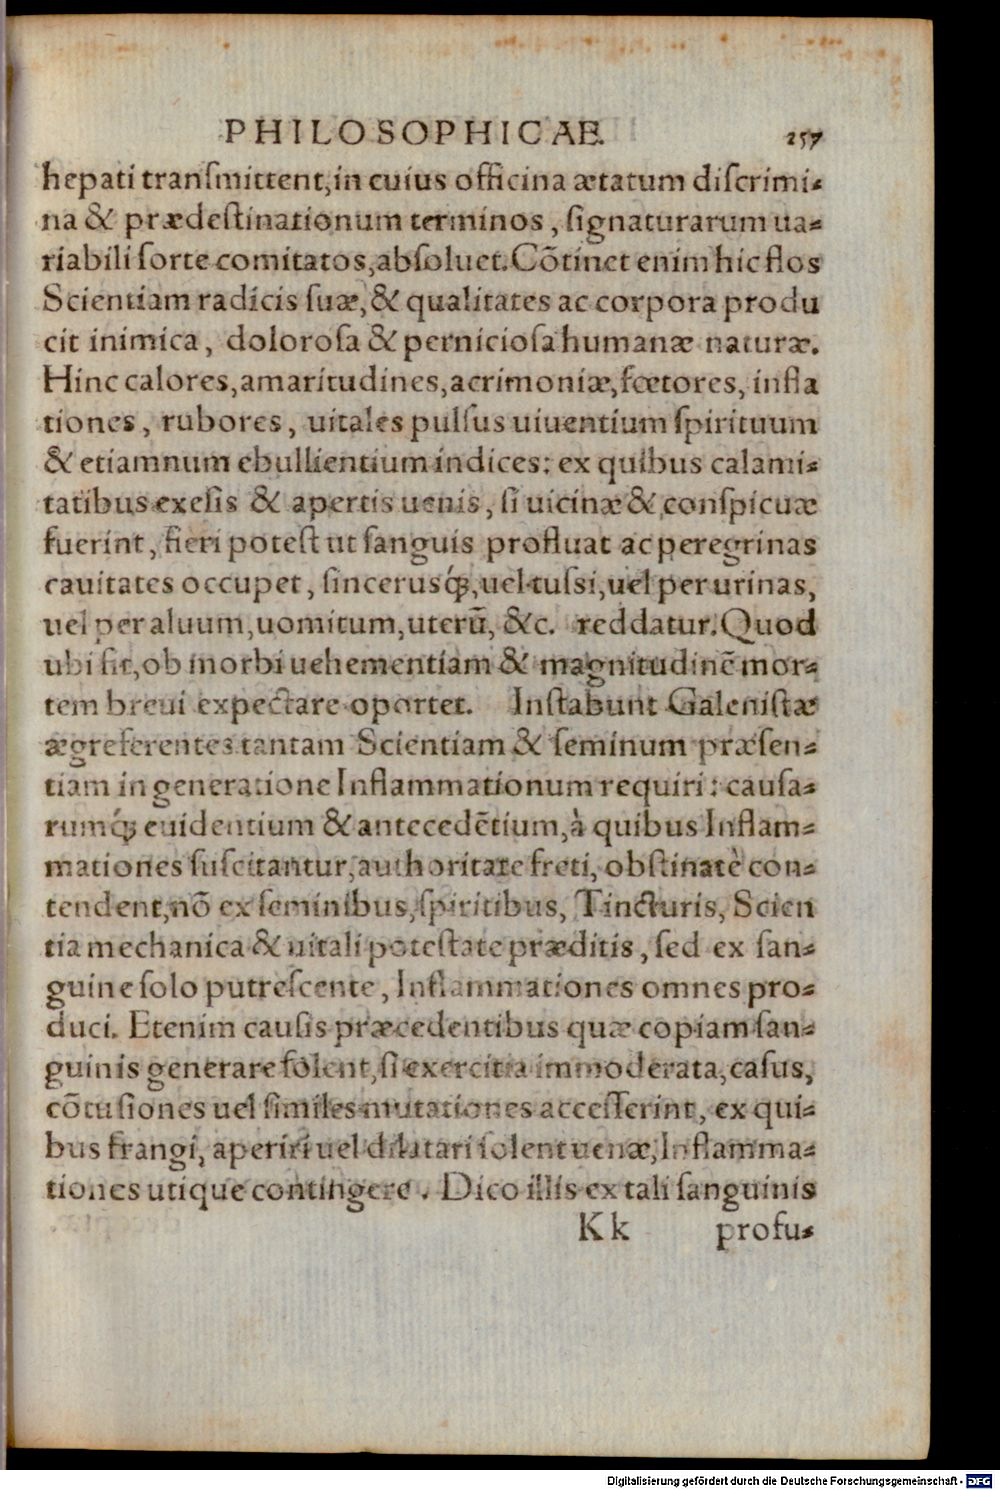 PHILOSOPHICAE. 257
hepati tranſmittent, in cuius officina ætatum diſcrimi-
na & prædeſtinationum terminos, ſignaturarum ua-
riabili ſorte comitatos, abſoluet. Cõtinet enim hic flos
Scientiam radicis ſuæ, & qualitates ac corpora produ
cit inimica, doloroſa & pernicioſa humanæ naturæ.
Hinc calores, amaritudines, acrimoniæ, fœtores, infla
tiones, rubores, uitales pulſus uiuentium ſpirituum
& etiamnum ebullientium indices: ex quibus calami-
tatibus exeſis & apertis uenis, ſi uicinæ & conſpicuæ
fuerint, fieri poteſt ut ſanguis profluat ac peregrinas
cauitates occupet, ſincerusq́;, uel tuſsi, uel per urinas,
uel per aluum, uomitum, uterũ, &c. reddatur. Quod
ubi fit, ob morbi uehementiam & magnitudinẽ mor-
tem breui expectare oportet. Inſtabunt Galeniſtæ
ægre ferentes tantam Scientiam & ſeminum præſen-
tiam in generatione Inflammationum requiri: cauſa-
rumq́; euidentium & antecedẽtium, à quibus Inflam-
mationes ſuſcitantur, authoritate freti, obſtinatè con-
tendent, nõ ex ſeminibus, ſpiritibus, Tincturis, Scien
tia mechanica & uitali poteſtate præditis, ſed ex ſan-
guine ſolo putreſcente, Inflammationes omnes pro-
duci. Etenim cauſis præcedentibus quæ copiam ſan-
guinis generare ſolent, ſi exercitia immoderata, caſus,
cõtuſiones uel ſimiles mutationes acceſſerint, ex qui-
bus frangi, aperiri uel dilatari ſolent uenæ, Inflamma-
tiones utique contingere. Dico illis ex tali ſanguinis
Kk profu-
Digitalisierung gefördert durch die Deutsche Forschungsgemeinschaft - DFG